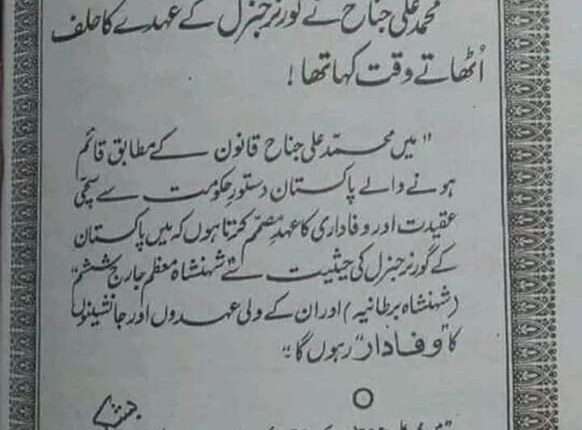 محمد علی جناح نے گورنر جنرل کے عہدے کا حلف
اُٹھاتے وقت کہا تھا!
"میں محمّد علی جناح قانون کے مطابق قائم
ہونے والے پاکستان دستورِ حکومت سے سچّی
عقیدت اور وفاداری کا عہدِ مصمّم کرتا ہوں کہ میں پاکستان
کے گورنر جنرل کی حیثیت سے "شہنشاہ معظم جارج ششم"
(شہنشاہ برطانیہ) اور ان کے ولی عہدوں اور جانشینوں
کا "وفادار" رہوں گا۔"